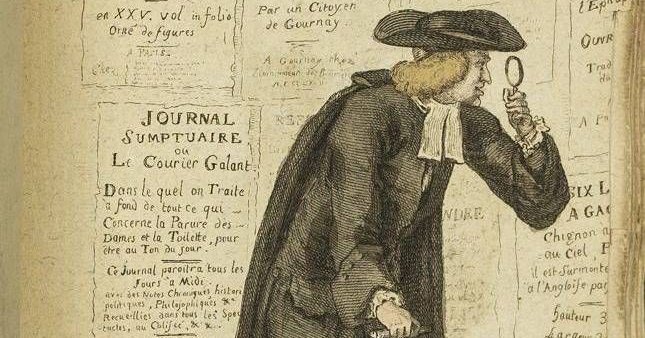 en XXV. Vol in folio
Orné de figures
A PARIS
Par un Citoyen
de Gournay.
A Gournay chez
JOURNAL
SUMPTUAIRE
OU
LE COURIER GALANT.
Dans le quel on Traite
à fond de tout ce qui
Concerne la Parure des
Dames et la Toilette, pour
être au Ton du jour.
Ce Journal paroitra tous les
Jours a Midi.
avec des Notes
politiques, Philosophiques &c
Recueillies dans tous les Spec
tacles, au Colisée, &c...
OUVR
Trad
du
A P
NDRE
SIX L
A GAG
Chignon a
au Ciel, F
il est Surmonté
à l'Angloise par
hauteur 3